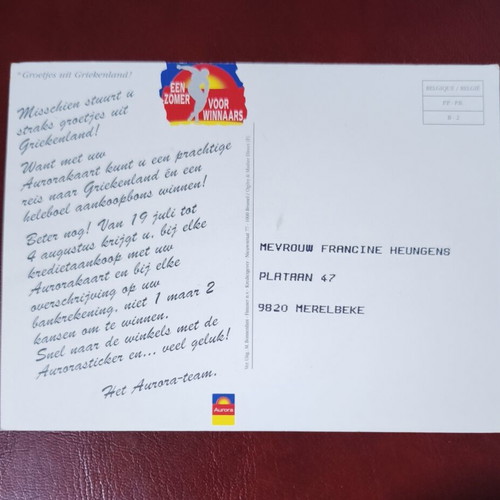 "Groetjes uit Griekenland!
Misschien stuurt u
straks groetjes uit
Griekenland!
Want met uw
Aurorakaart kunt u een prachtige
reis naar Griekenland én een
heleboel aankoopbons winnen!
Beter nog! Van 19 juli tot
4 augustus krijgt u, bij elke
kredietaankoop met uw
Aurorakaart en bij elke
overschrijving op uw
bankrekening, niet 1 maar 2
kansen om te winnen.
Snel naar de winkels met de
Aurorasticker en... veel geluk!
Het Aurora-team.
EEN
ZOMER
VOOR
WINNAARS
Aurora
BELGIQUE / BELGIË
PP-PB
B-1
MEVROUW FRANCINE HEUNGENS
PLATAAN 47
9820 MERELBEKE